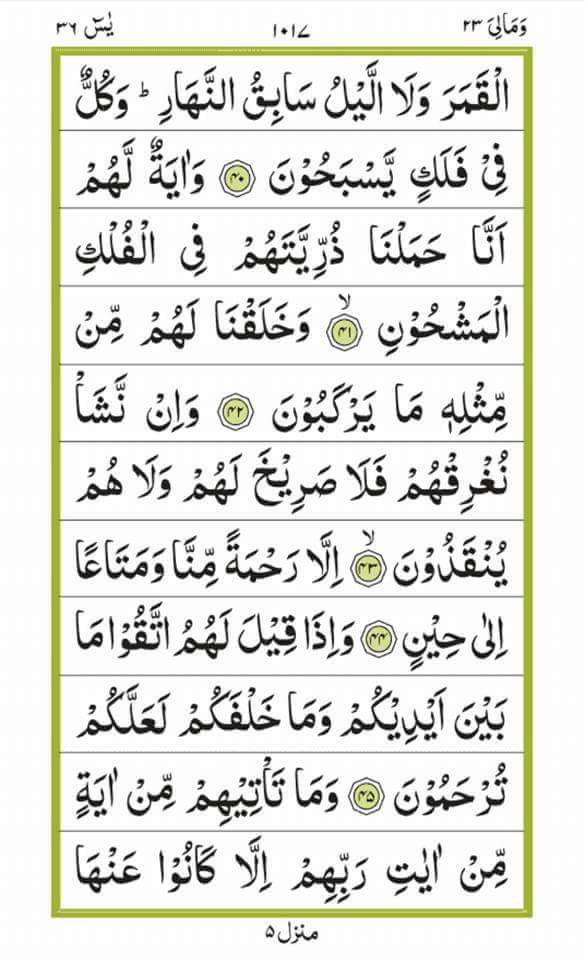 وَمَالِیَ ۲۳
۱۰۱۷
یٰسٓ ۳۶
الْقَمَرَ وَلَا الَّیْلُ سَابِقُ النَّهَارِ ؕ وَكُلٌّ
فِیْ فَلَكٍ یَّسْبَحُوْنَ ۴۰ وَاٰیَةٌ لَّهُمْ
اَنَّا حَمَلْنَا ذُرِّیَّتَهُمْ فِی الْفُلْكِ
الْمَشْحُوْنِ ۙ ۴۱ وَخَلَقْنَا لَهُمْ مِّنْ
مِّثْلِهٖ مَا یَرْكَبُوْنَ ۴۲ وَاِنْ نَّشَاْ
نُغْرِقْهُمْ فَلَا صَرِیْخَ لَهُمْ وَلَا هُمْ
یُنْقَذُوْنَ ۙ ۴۳ اِلَّا رَحْمَةً مِّنَّا وَمَتَاعًا
اِلٰی حِیْنٍ ۴۴ وَاِذَا قِیْلَ لَهُمُ اتَّقُوْا مَا
بَیْنَ اَیْدِیْكُمْ وَمَا خَلْفَكُمْ لَعَلَّكُمْ
تُرْحَمُوْنَ ۴۵ وَمَا تَاْتِیْهِمْ مِّنْ اٰیَةٍ
مِّنْ اٰیٰتِ رَبِّهِمْ اِلَّا كَانُوْا عَنْهَا
منزل ۵